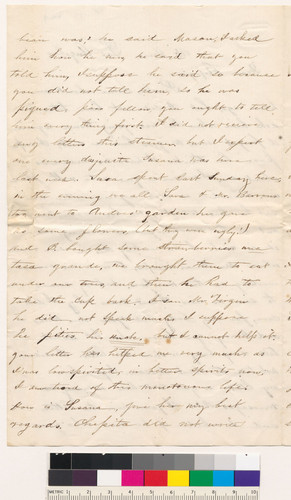 him how he was he said that you
told him, I suppose he said so because
you did not tell him, so he was
piqued, poor fellow you ought to tell
him every thing first. I did not receive
any letters this steamer but I expect
one every
last week. Susa spent last Sunday here,
in the evening we all, Susa & Mr. Barrows
too went to garden he gave
us some flowers, but they were ugly!
and I bought some strawberries and a
taza grande, we brought them to eat
under our trees and then he had to
take the Cup back. I saw Mr.
he did not speak much, I suppose
he pities his but I cannot help it.
your letter has helped me very much as
I was lowspirited, in better spirits now,
I am tired of this monotonous life.
How is Susana, give her my best
regards. Chepita did not write
METRIC 1 2 3 4 5 6 7 8 9 10